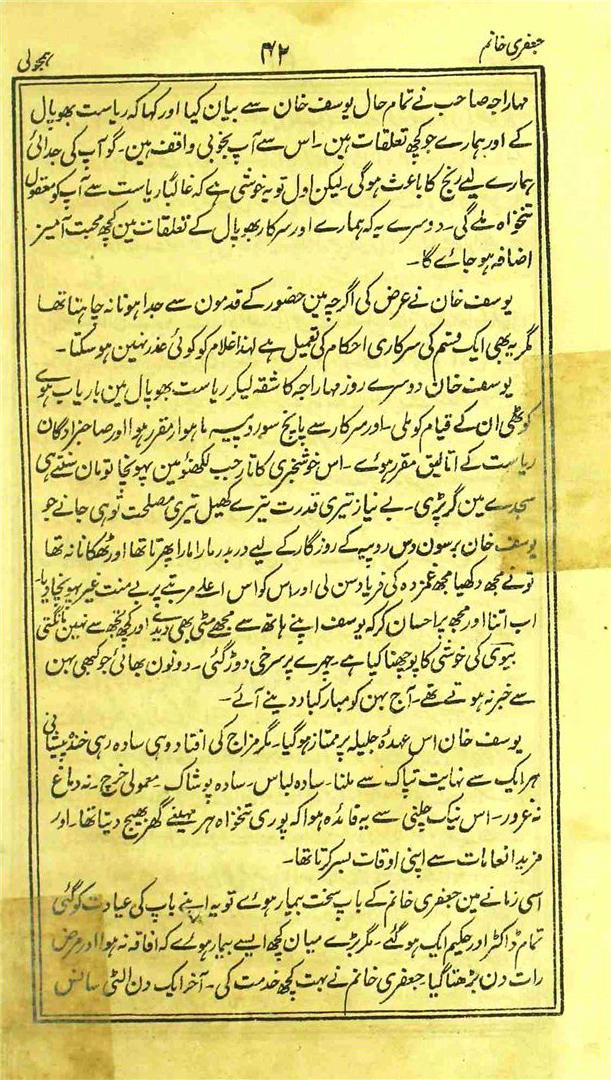 جعفری خانم ۴۲ ہمجولی
مہاراجہ صاحب نے تمام حال یوسف خان سے بیان کیا اور کہا کہ ریاست بھوپال
کے اور ہمارے جو کچھ تعلقات ہین۔ اس سے آپ بخوبی واقف ہین۔ گو آپ کی جدائی
ہمارے لیے رنج کا باعث ہوگی۔ لیکن اول تو یہ خوشی ہے کہ غالباً ریاست سے آپ کو معقول
تنخواہ ملے گی۔ دوسرے یہ کہ ہمارے اور سرکار بھوپال کے تعلقات مین کچھ محبت آمیز
اضافہ ہو جائے گا۔
یوسف خان نے عرض کی اگرچہ مین حضور کے قدمون سے جدا ہونا نہ چاہتا تھا
مگر یہ بھی ایک قسم کی سرکاری احکام کی تعمیل ہے لہذا غلام کو کوئی عذر نہین ہو سکتا۔
یوسف خان دوسرے روز مہاراجہ کا شقہ لیکر ریاست بھوپال مین باریاب ہوے
کوٹھی ان کے قیام کو ملی۔ اور سرکار سے پانچ سو روپیہ ماہوار مقرر ہوا اور صاحبزادگان
ریاست کے اتالیق مقرر ہوئے۔ اس خوشخبری کا تار جب لکھنؤ مین پہونچا تو مان سنتے ہی
سجدے مین گر پڑی۔ بے نیاز تیری قدرت تیرے کھیل تیری مصلحت تو ہی جانے جو
یوسف خان برسون دس روپیہ کے روزگار کے لیے در بدر مارا مارا پھرتا تھا اور ٹھکانا نہ تھا
تونے مجھ دکھیا مجھ غمزدہ کی فریاد سن لی اور اس کو اس اعلے مرتبے پر بے منت غیر پہونچا دیا۔
اب اتنا اور مجھ پر احسان کر کہ یوسف اپنے ہاتھ سے مجھے مٹی بھی دیدے اور کچھ تجھ سے نہین مانگتی
بیوی کی خوشی کا پوچھنا کیا ہے۔ چہرے پر سرخی دوڑ گئی۔ دونون بھائی جو کبھی بہن
سے خبر نہ ہوتے تھے۔ آج بہن کو مبارکباد دینے آئے۔
یوسف خان اس عہدۂ جلیلہ پر ممتاز ہو گیا۔ مگر مزاج کی افتاد وہی سادہ رہی خندہ پیشانی
ہر ایک سے نہایت تپاک سے ملنا۔ سادہ لباس۔ سادہ پوشاک۔ معمولی خرچ۔ نہ دماغ
نہ غرور۔ اس نیک چلنی سے یہ فائدہ ہوا کہ پوری تنخواہ ہر مہینے گھر بھیج دیتا تھا۔ اور
مزید انعامات سے اپنی اوقات بسر کرتا تھا۔
اسی زمانے مین جعفری خانم کے باپ سخت بیمار ہوے تو یہ اپنے باپ کی عیادت کو گئی
تمام ڈاکٹر اور حکیم ایک ہو گئے۔ مگر بڑے میان کچھ ایسے بیمار ہوے کہ افاقہ نہ ہوا اور مرض
رات دن بڑھتا گیا جعفری خانم نے بہت کچھ خدمت کی۔ آخر ایک دن الٹی سانس